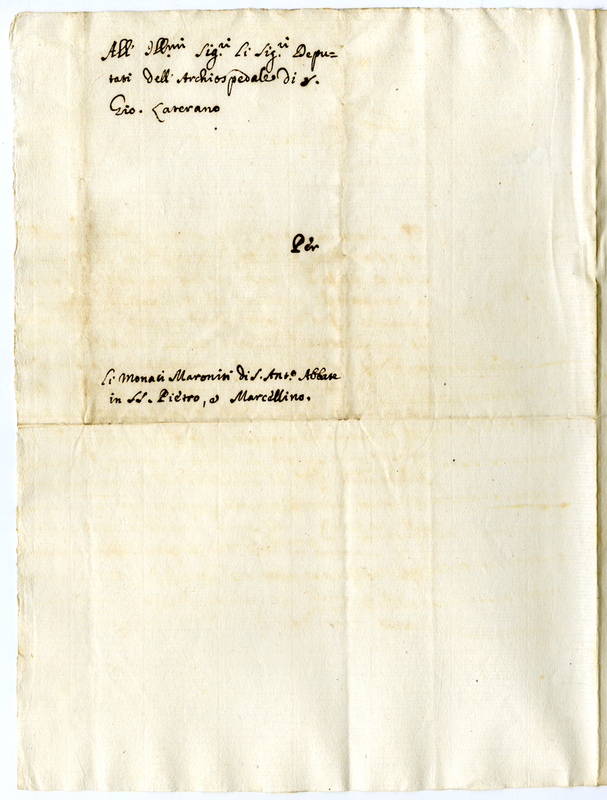 All' Illmi Sigri Li Sigri Depu=
tati dell' Archiospedale di S.
Gio. Laterano
Per
Li Monaci Maroniti di S. Anto Abbate
in SS. Pietro, e Marcellino.